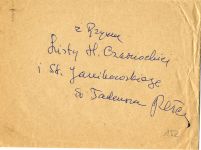 z Rzymu
Listy H. Czarnockiej
i St. Janikowskiego
do Tadeusza
152